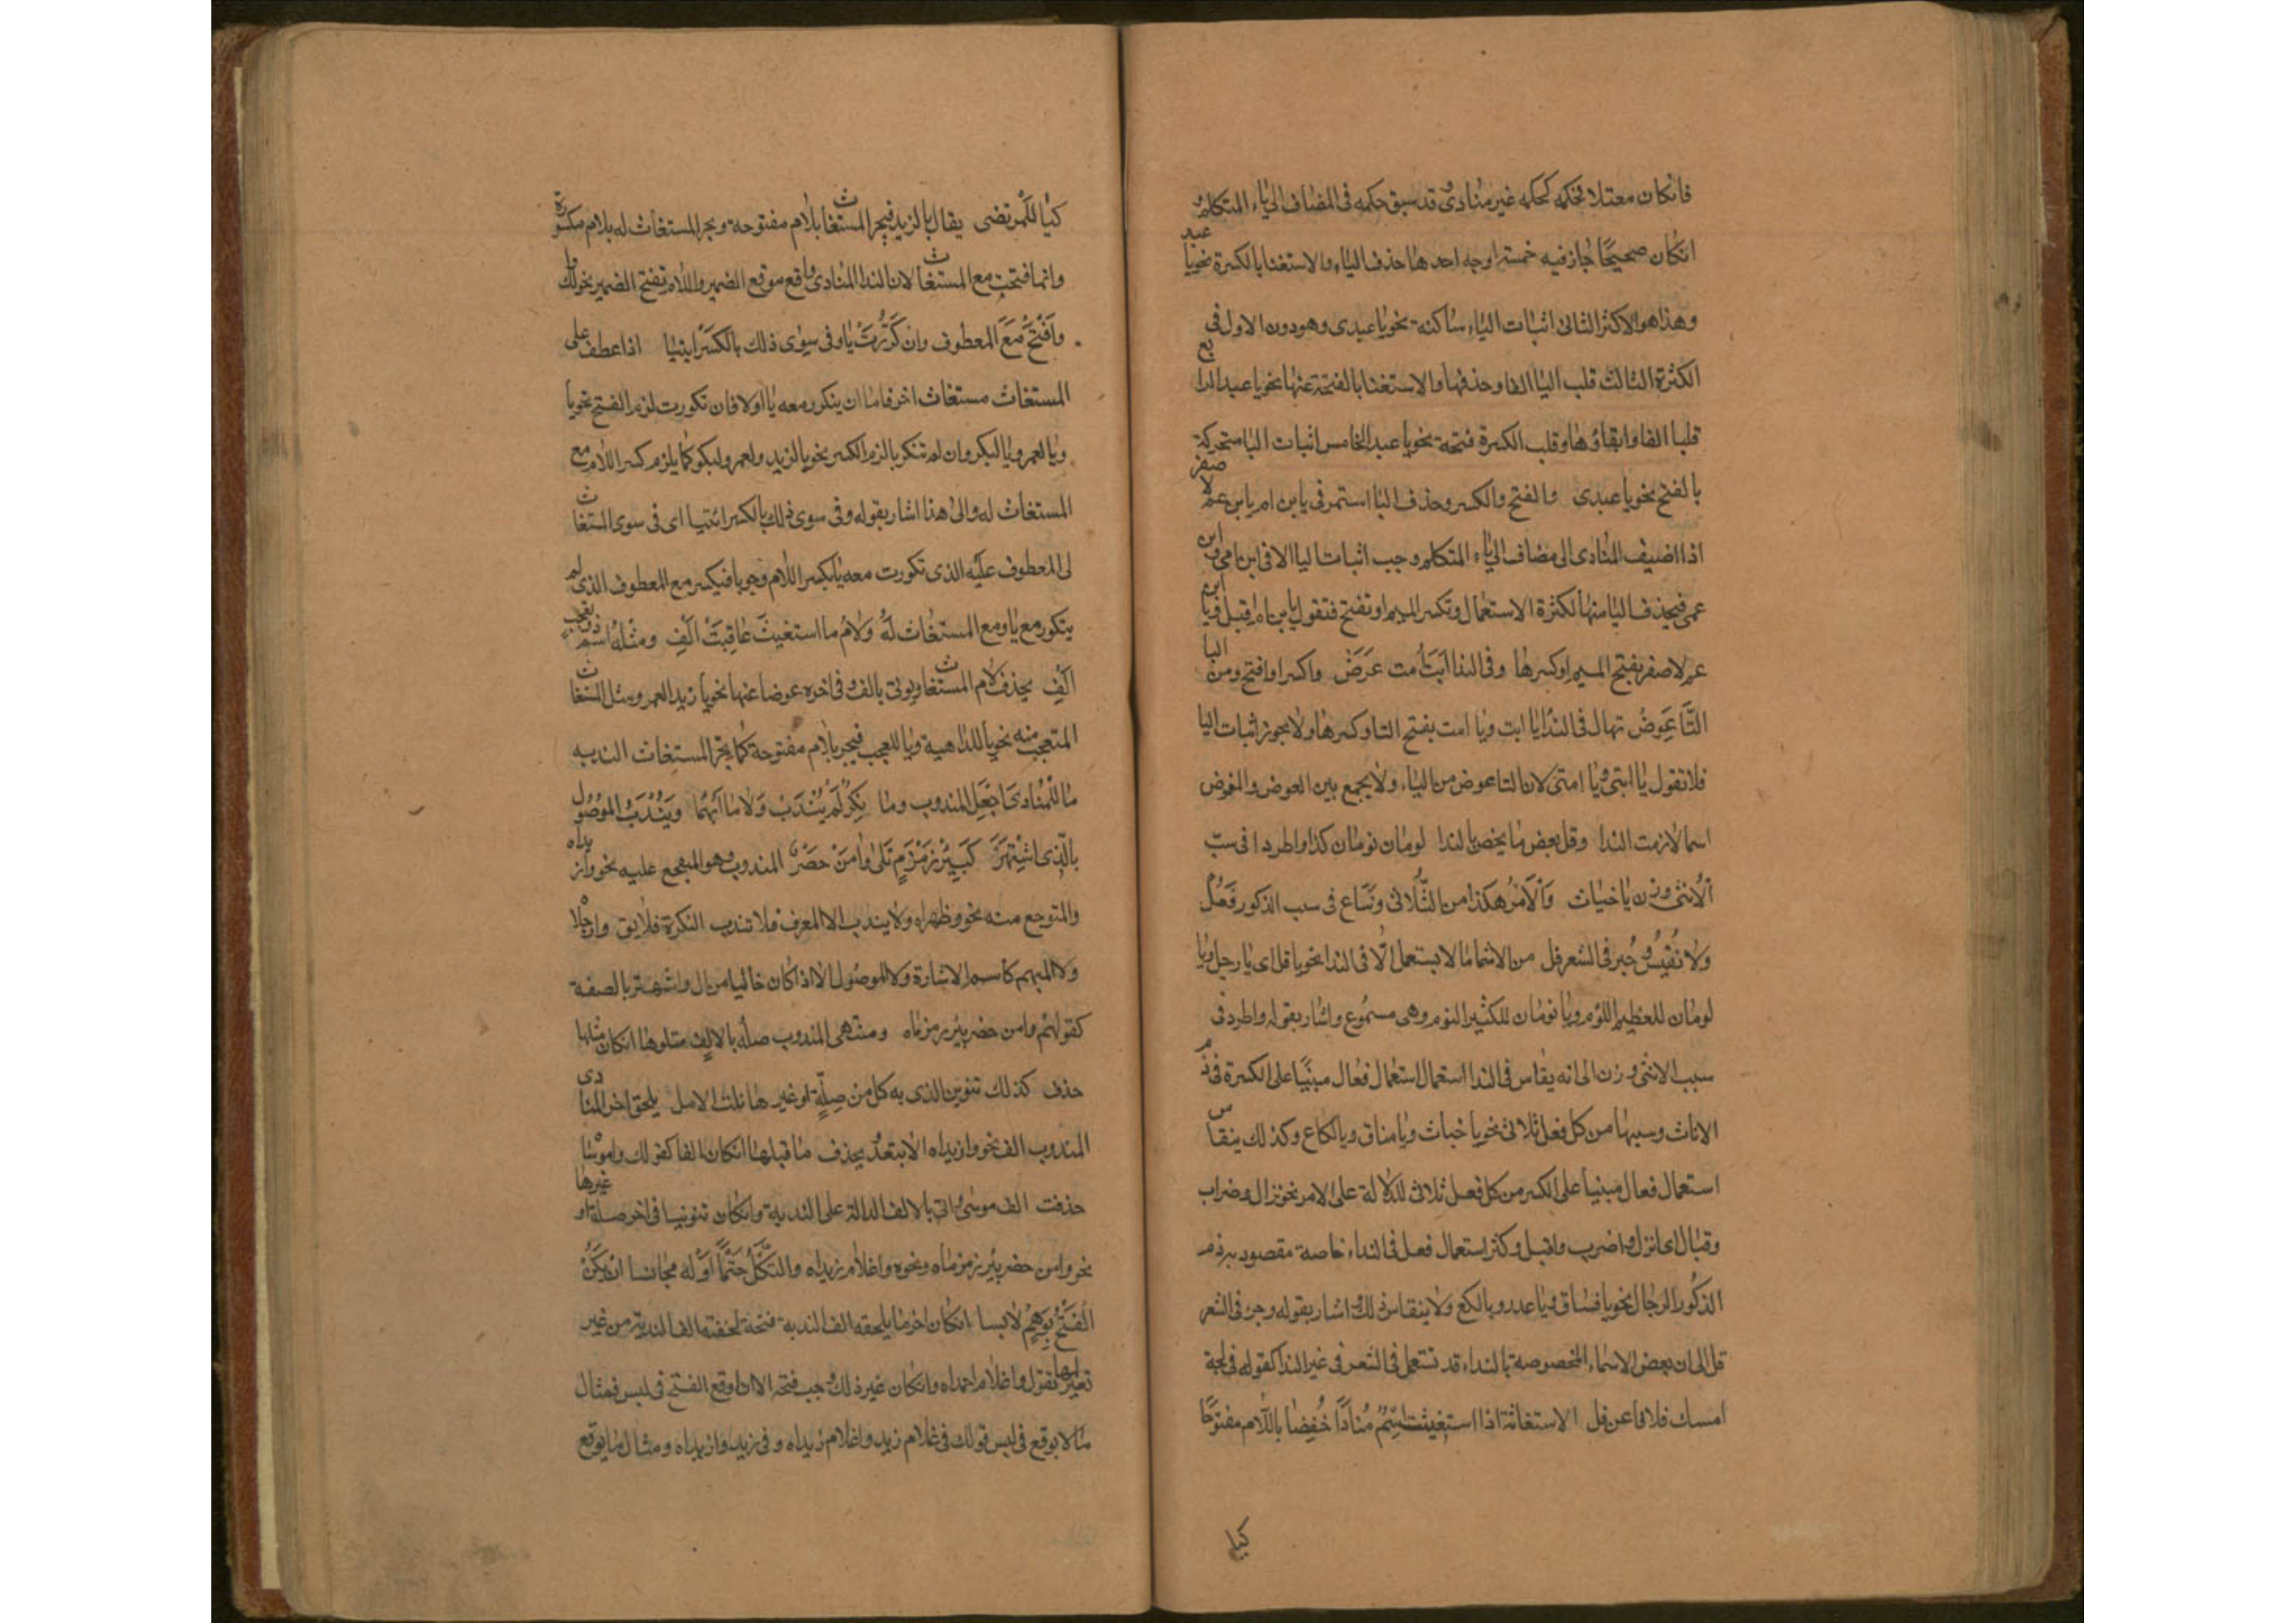 فانكان معتلا فحكمه كحكمه غير منادى وقد سبق حكمه فى المضاف الى ياء المتكلم و
انكان صحيحًا جاز فيه خمسة اوجه احدها حذف الياء والاستغنا بالكسرة نحو يا عبد
وهذا هو الاكثر الثانى اثبات الياء ساكنة نحو يا عبدى وهو دون الاول فى
الكثرة الثالث قلب اليا الفا وحذفها والاستغنا بالفتحة عنها نحو يا عبد الرابع
قلبا الفا وابقاؤها وقلب الكسرة فتحة نحو يا عبدا الخامس اثبات اليا متحركة
بالفتح نحو يا عبدى والفتح والكسر وحذف اليا استمر فى يا ابن ام يا ابن عم لا مفر
اذا اضيف المنادى الى مضاف الى ياء المتكلم وجب اثبات اليا الا فى ابن امى وابن
عمى فيحذف اليا منها لكثرة الاستعمال وتكسر الميم او تفتح فتقول يا ابن ام اقبل ويا ابن
عم لا مفر بفتح الميم او كسرها وفى الندا ابت امت عرض واكسر او افتح ومن اليا
التا عوض تهال فى الندا يا ابت ويا امت بفتح التا وكسرها ولا يجوز اثبات اليا
فلا تقول يا ابتى ويا امتى لان التا عوض من الياء ولا يجمع بين العوض والمعوض
اسما لازمت الندا وقل بعض ما يخص بالندا لومان نومان كذا واطردا فى سبّ
الانثى وزن يا خباث والامر هكذا من الثلاثى وشاع فى سب الذكور فعل
ولا تقيس وجر فى الشعر فل من الاسما ما لا يستعمل الا فى الندا نحو يا فل اى يا رجل ويا
لومان للعظيم اللؤم ويا نومان للكثير النوم وهى مسموع واشار بقوله واطرد فى
سبب الانثى وزن الى انه يقاس فى الندا استعمال استعمال فعال مبنيًا على الكسرة فى ذم
الاناث وسبها من كل فعل ثلاثى نحو يا خباث ويا مناق ويا لكاع وكذلك ينقاس
استعمال فعال مبنيا على الكسر من كل فعل ثلاثى للدلالة على الامر نحو نزال وضراب
وقبال اى انزل واضرب واقبل وكثر استعمال فعل فى النداء خاصة مقصود به ذم
الذكور الرجال نحو يا فساق ويا عدر ويا لكع ولا ينقاس ذلك واشار بقوله وجر فى الشعر
فل الى ان بعض الاسماء المخصوصة بالنداء قد تستعمل فى الشعر فى غير الندا كقوله فى لجة
امسك فلانا عن فل الاستغاثة اذا استغيث اسم منادًا خفضا باللّام مفتوحًا
كيا
كيا للمرتضى يقال يا لزيد فيجر المستغاث بلام مفتوحة ويجر المستغاث له بلام مكسورة
وانما فتحت مع المستغاث لان الندا المنادى واقع موقع الضمير واللام تفتح الضمير نحو لك
وافتح مع المعطوف وان كررت يا وفى سوى ذلك بالكسر ايتيا اذا عطف على
المستغاث مستغاث اخر فاما ان يتكرر معه يا اولا فان تكررت لزم الفتح نحو يا
ويا لعمرو يا لبكر وان لم تتكر يا لزم الكسر نحو يا لزيد ولعمر ولبكر كما يلزم كسر اللام مع
المستغاث له والى هذا اشار بقوله وفى سوى ذلك بالكسر ائتيا اى فى سوى المستغاث
لى المعطوف عليه الذى تكررت معه يا بكسر اللام وجوبا فيكسر مع المعطوف الذى لم
يتكرر مع يا ومع المستغاث له ولام ما استغيث عاقبت الف ومثله اسم ذو تعجب
الف يحذف لام المستغاث ويوتى بالف فى اخره عوضا عنها نحو يا زيدا لعمر ومثل المستغاث
المتعجب منه نحو يا للداهية ويا للعجب فيجر بلام مفتوحة كما يجر المستغاث الندبه
ما للمنادى اجعل لمندوب وما نكر لم يندب ولا ما ابهما ويندب الموصول
بالذى اشتهر كبير زمزم تلى وامن حضر المندوب هو المتفجع عليه نحو وازيداه
والمتوجع منه نحو وظهراه ولا يندب الا المعرف فلا تندب النكرة فلا يق وارجلا
ولا المبهم كاسم الاشارة ولا الموصول الا اذا كان خاليا من ال واشتهر بالصفة
كقولهم وامن حضر بير زمزماه ومنتهى المندوب صله بالالف متلوها انكان مثلها
حذف كذلك تنوين الذى به كمل من صلة او غيرها نلت الامل يلحق اخر المنادى
المندوب الف نحو وازيداه لا تبتعد يحذف ما قبلها انكان الفا كقولك واموسا
حذفت الف موسى واتى بالالف الدالة على الندبة وانكان تنوينا فى اخر صلة او غيرها
نحو وامن حضر بير زمزماه ونحوه واغلام زيداه والشكل حتما اوله مجانسا ان يكن
الفتح بوهم لابسا انكان اخر ما يلحقه الف الندبة فتحة لحقته الف الندبة من غير
تغير لها تقول واغلام احمداه وانكان غير ذلك وجب فتحه الا ان اوقع الفتح فى لبس فمثال
ما لا يوقع فى لبس قولك فى غلام زيد واغلام زيداه وفى زيد وازيداه ومثال ما يوقع